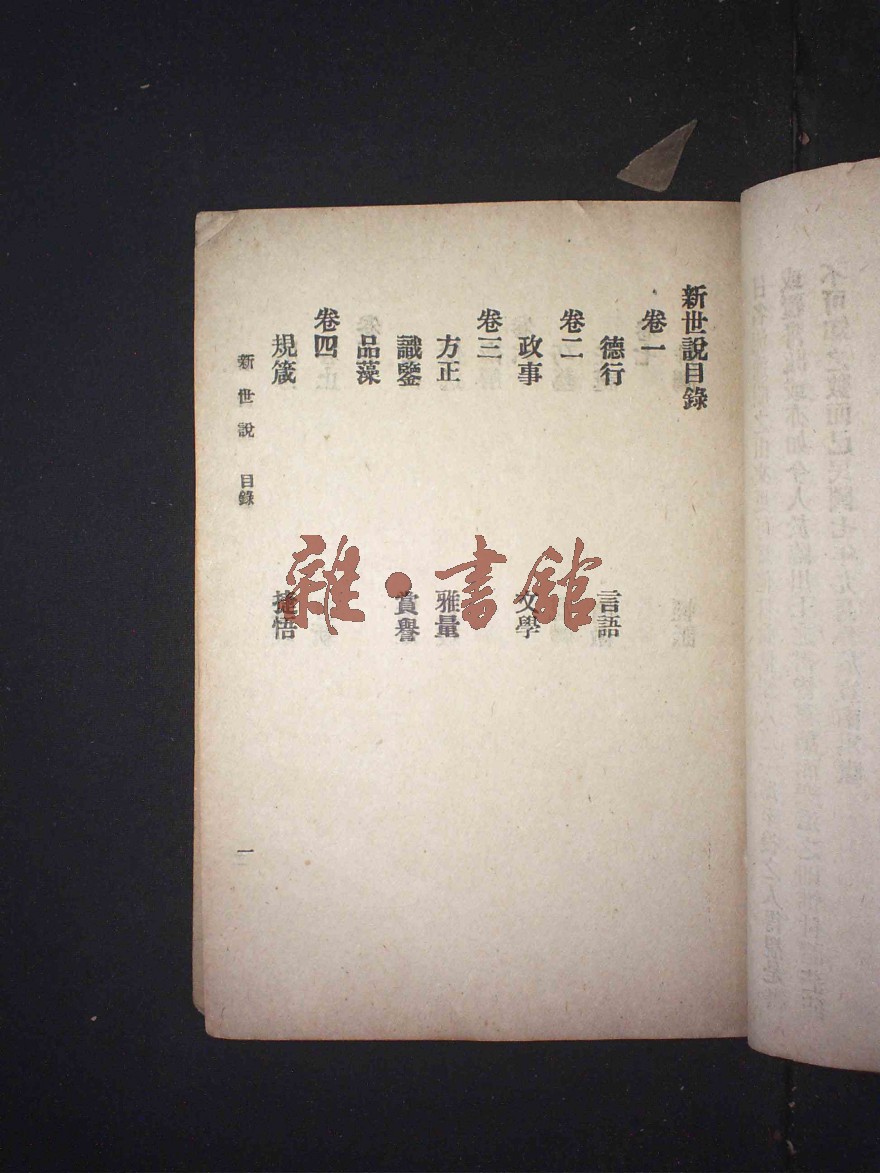 新世說目錄
卷一
德行 言語
卷二
政事 文學
卷三
方正 雅量
識鑒 賞譽
品藻
卷四
規箴 捷悟
新世說 目錄
一
雜·書館